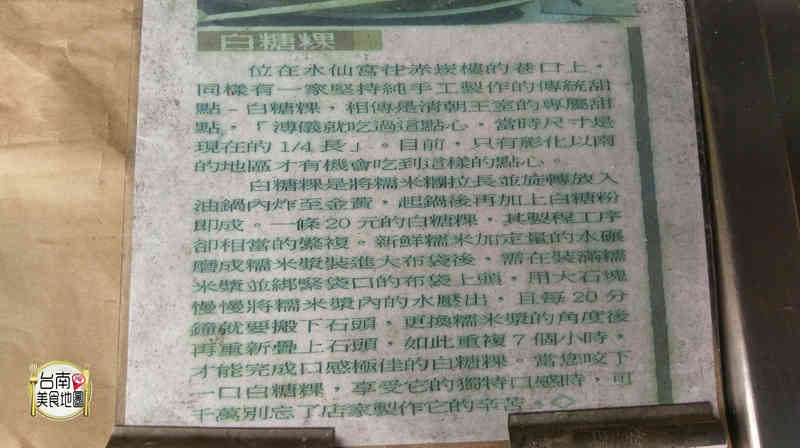 白糖粿
位在水仙宮往赤崁樓的巷口上，
同樣有一家堅持純手工製作的傳統甜
點－白糖粿，相傳是清朝王室的專屬甜
點，「溥儀就吃過這點心，當時尺寸是
現在的1/4長」。目前，只有彰化以南
的地區才有機會吃到這樣的點心。
白糖粿是將糯米糰拉長並旋轉放入
油鍋內炸至金黃，起鍋後再加上白糖粉
即成。一條20元的白糖粿，其製程工序
卻相當的繁複。新鮮糯米加定量的水碾
磨成糯米漿裝進大布袋後，需在裝滿糯
米漿並綁緊袋口的布袋上頭，用大石塊
慢慢將糯米漿內的水壓出，且每20分
鐘就要搬下石頭，更換糯米漿的角度後
再重新疊上石頭，如此重複7個小時，
才能完成口感極佳的白糖粿。當您咬下
一口白糖粿，享受它的獨特口感時，可
千萬別忘了店家製作它的辛苦。
台南
美食地圖